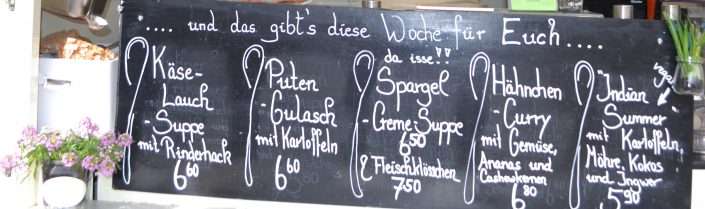 .... und das gibt's diese Woche für Euch....
Käse-
Lauch
-Suppe
mit Rinderhack
6 60
Puten
-Gulasch
mit Kartoffeln
6 60
da isse!!
Spargel
-Creme-Suppe
6 50
& Fleischklösschen
7.50
Hähnchen
-Curry
mit Gemüse,
Ananas und
Cashewkernen
6 80
vegan
Indian
Summer
mit Kartoffeln,
Möhre, Kokos
und Ingwer
5 90